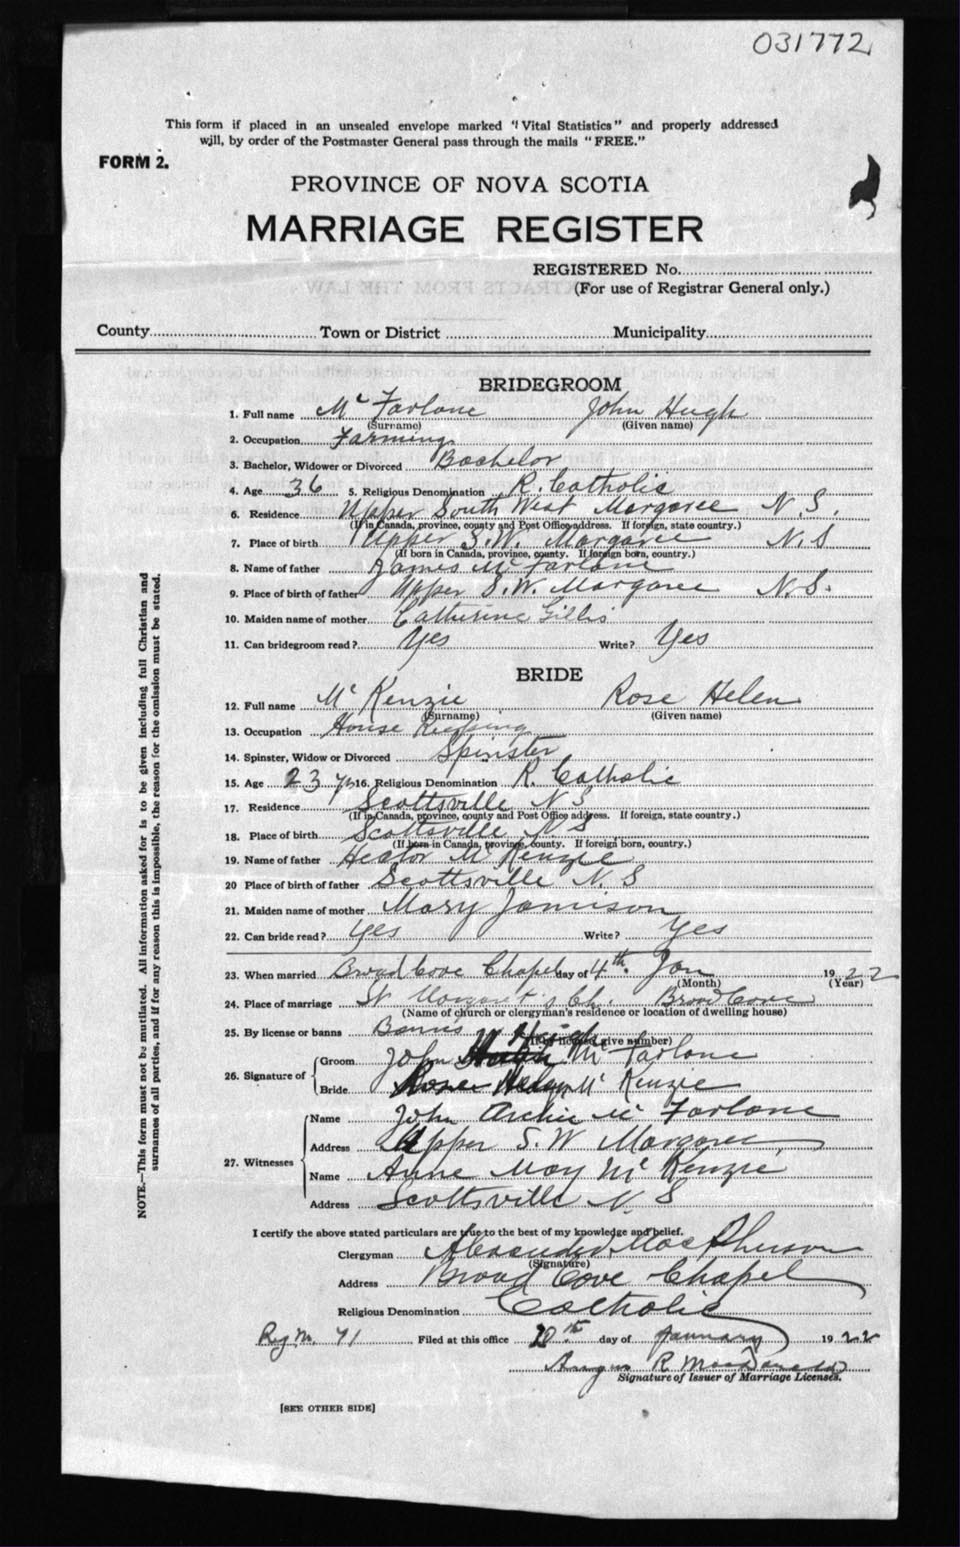 031772
This form if placed in an unsealed envelope marked "Vital Statistics" and properly addressed
will, by order of the Postmaster General pass through the mails "FREE."
FORM 2.
PROVINCE OF NOVA SCOTIA
MARRIAGE REGISTER
REGISTERED No.
(For use of Registrar General only.)
County Town or District Municipality
BRIDEGROOM
1. Full name Mc Farlane John Hugh
(Surname) (Given name)
2. Occupation Farming
3. Bachelor, Widower or Divorced Bachelor
4. Age 36 5. Religious Denomination R. Catholic
6. Residence Upper South West Margaree N.S.
(If in Canada, province, county and Post Office address. If foreign, state country.)
7. Place of birth Upper S.W. Margaree N.S
(If born in Canada, province, county. If foreign born, country.)
8. Name of father James Mc Farlane
9. Place of birth of father Upper S.W. Margaree N.S.
10. Maiden name of mother Catherine Gillis
11. Can bridegroom read? Yes Write? Yes
BRIDE
12. Full name Mc Kenzie Rose Helen
(Surname) (Given name)
13. Occupation House Keeping
14. Spinster, Widow or Divorced Spinster
15. Age 23 16. Religious Denomination R. Catholic
17. Residence Scottsville N S
(If in Canada, province, county and Post Office address. If foreign, state country.)
18. Place of birth Scottsville N S
(If born in Canada, province, county. If foreign born, country.)
19. Name of father Hector Mc Kenzie
20 Place of birth of father Scottsville N. S
21. Maiden name of mother Mary Jamison
22. Can bride read? Yes Write? Yes
23. When married Broad Cove Chapel day of 4th Jan 1922
(Month) (Year)
24. Place of marriage St Margaret's Ch. Broad Cove
(Name of church or clergyman's residence or location of dwelling house)
25. By license or banns Banns
(If by license, give number)
26. Signature of
Groom John Hugh Mc Farlane
Bride Rose Helen Mc Kenzie
27. Witnesses
Name John Archie Mc Farlane
Address Upper S.W Margaree
Name Anne May Mc Kenzie
Address Scottsville N. S
I certify the above stated particulars are true to the best of my knowledge and belief.
Clergyman Alexander MacPherson
(Signature)
Address Broad Cove Chapel
Religious Denomination Catholic
Reg No. 71 Filed at this office 28th day of January 1922
Angus R MacDonald
Signature of Issuer of Marriage Licenses.
[SEE OTHER SIDE]
NOTE.—This form must not be mutilated. All information asked for is to be given including full Christian and
surnames of all parties, and if for any reason this is impossible, the reason for the omission must be stated.